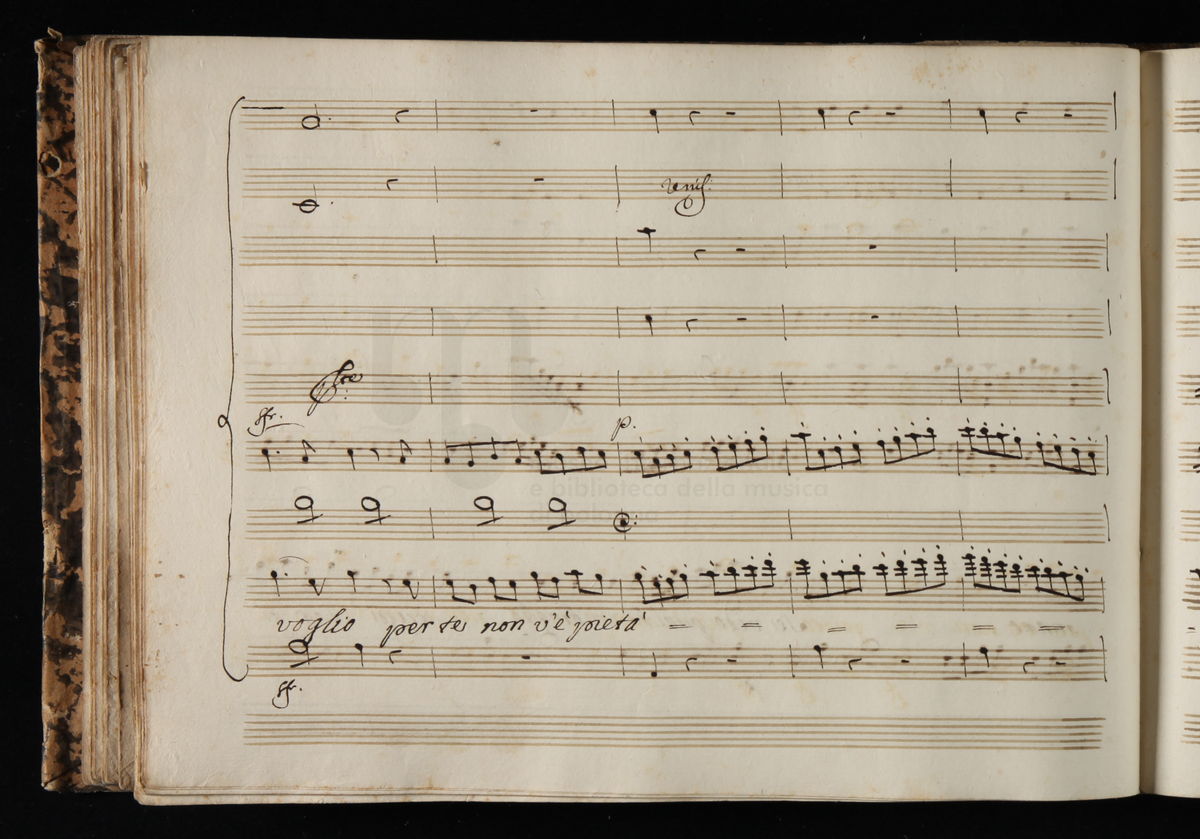 unis:
sfr.
p.
e biblioteca della musica
voglio per te non v'è pietà
sfr.